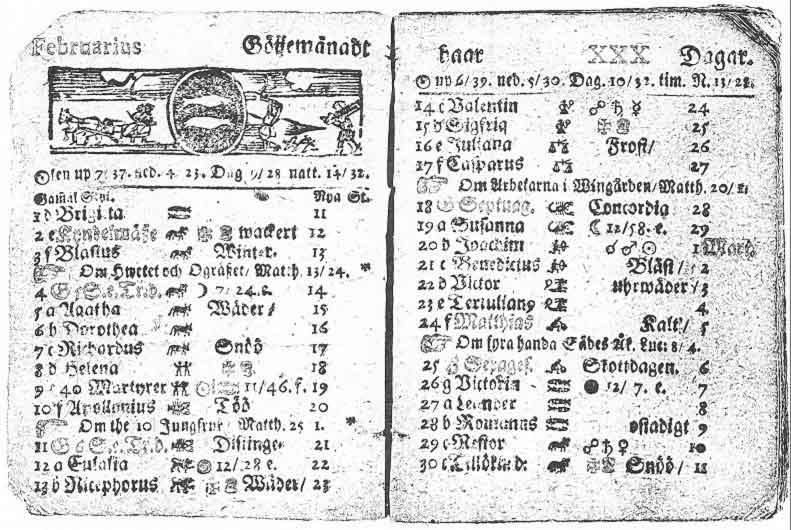 Februarius Götjemånadt
Solen up 7/ 37. ned. 4 23. Dag 9/ 28 natt. 14/ 32.
Gamal Styl. Nya St.
1 d Brigitta 11
2 e Kyndelmässe wackert 12
3 f Blasius Winter. 13
Om Hwetet och Ogräset/ Matth. 13/ 24. *
4 G 5 S. e. Tr. d. ☽ 7/ 24. 14
5 a Agatha Wäder/ 15
6 b Dorothea 16
7 c Richardus Snöö 17
8 d Helena 18
9 e 40 Martyrer 11/ 46. f. 19
10 f Apollonius Töö 20
Om the 10 Jungfrur Matth. 25 1. *
11 G 6 S. e. Tr. d. Distinge 21
12 a Eulalia 12/ 28 e. 22
13 b Nicephorus Wäder/ 23
haar XXX Dagar.
up 6/ 39. ned. 5/ 30. Dag. 10/ 32. tim. N. 13/ 28.
14 c Valentin ☍ ♄ ☿ 24
15 d Sigfrid 25
16 e Juliana Frost/ 26
17 f Casparus 27
Om Arbetarna i Wingården/ Matth. 20/ 1.
18 G Septuag. Concordia 28
19 a Susanna ☾ 12/ 58. e. 29
20 b Joachim ☌ ♂ ☉ 1 Mart.
21 c Benedictus Bläst/ 2
22 d Victor uhrwäder/ 3
23 e Tertulian9 4
24 f Matthias Kalt/ 5
Om fyra handa Sädes Åk. Luc: 8/ 4.
25 G Sexages. Skottdagen. 6
26 g Victorin ● 12/ 7. e. 7
27 a Leander 8
28 b Romanus ostadigt 9
29 c Nestor ☍ ♄ ♀ 10
30 c Snöö/ 11